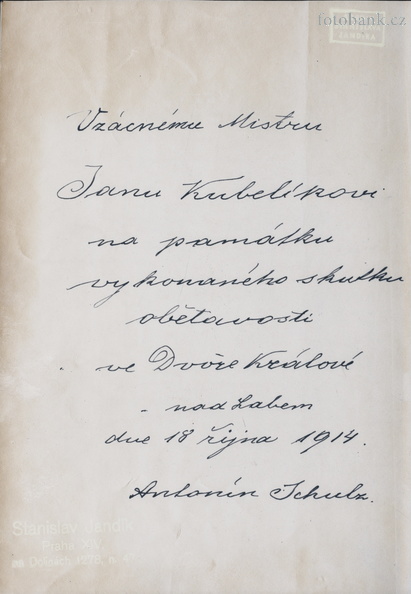 fotobank.cz
Vzácnému Mistru
Janu Kubelíkovi
na památku
vykonaného skutku
obětavosti
ve Dvoře Králové
nad Labem
dne 18 října 1914.
Antonín Schulz.
Stanislav Jandík
Praha XIV
na Dolinách 1273, n.